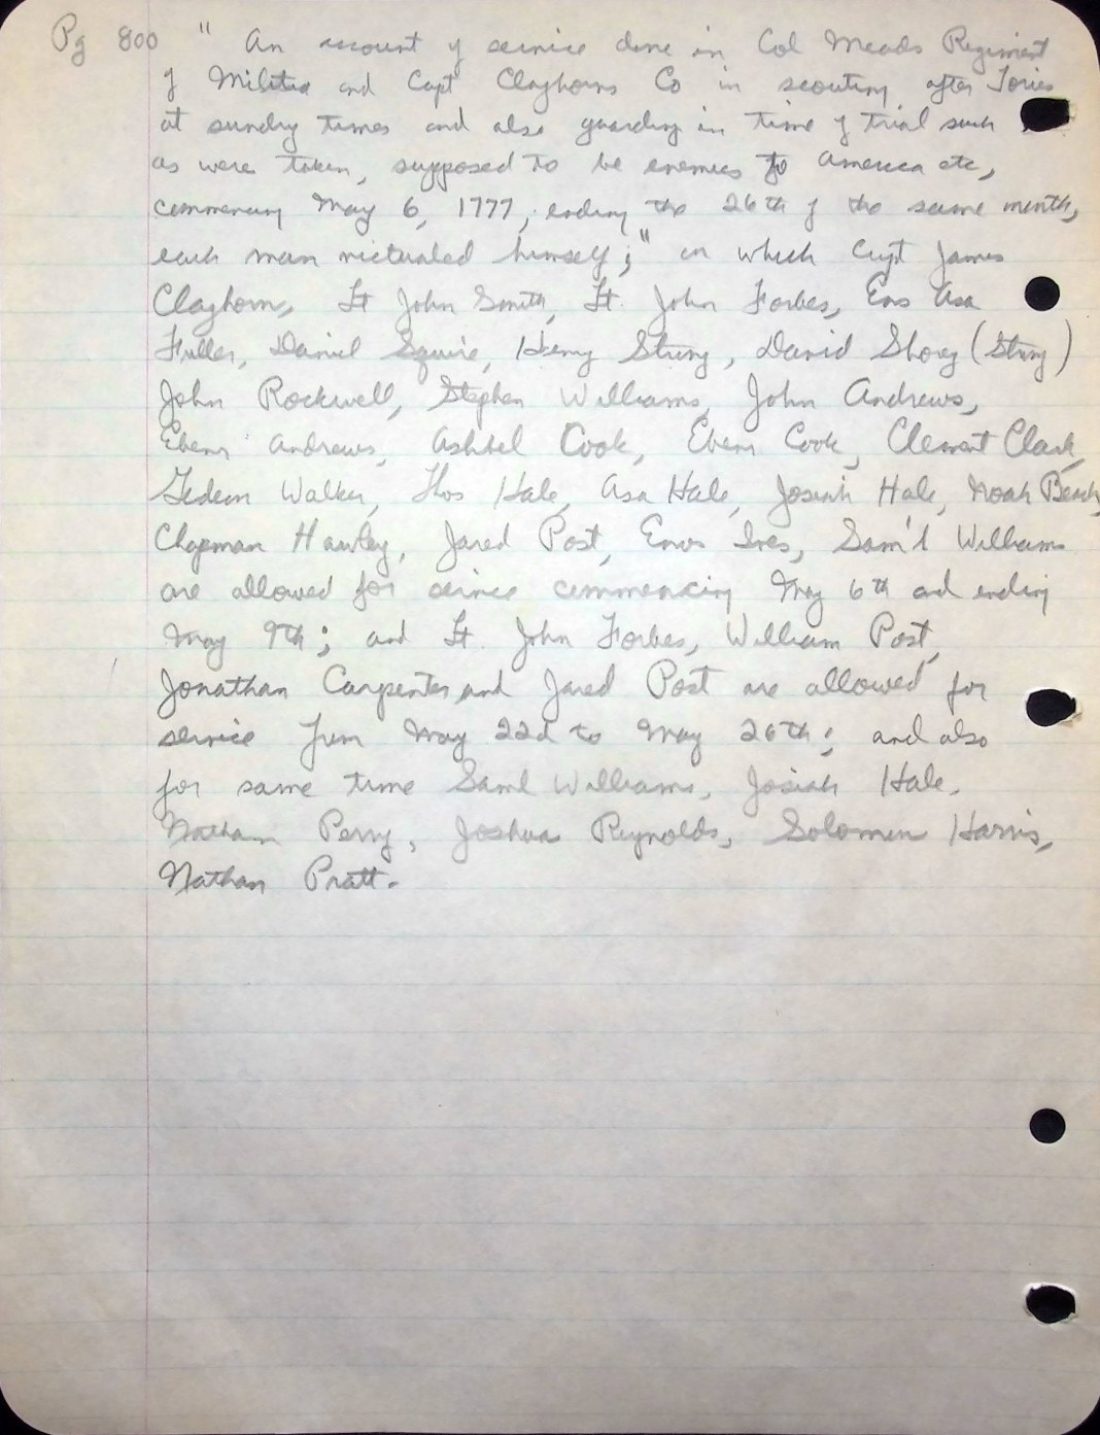 Pg 800 " An account of service done in Col Meads Regiment
of Militia and Capt Claghorns Co in scouting after Tories
at sundry times and also guarding in time of trial such
as were taken, supposed to be enemies to America etc,
commencing May 6, 1777, ending the 26th of the same month,
each man victualed himself;" in which Capt James
Claghorn, Lt John Smith, Lt. John Forbes, Ens Asa
Fuller, Daniel Squire, Henry Strong, David Shorey (Strong)
John Rockwell, Stephen Williams, John Andrews,
Ebenr Andrews, Ashbel Cook, Ebenr Cook, Clement Clark,
Gedeon Walker, Thos Hale, Asa Hale, Josiah Hale, Noah Beach,
Chapman Hawley, Jared Post, Enos Ives, Sam'l Williams
are allowed for service commencing May 6th and ending
May 9th; and Lt. John Forbes, William Post,
Jonathan Carpenter, and Jared Post are allowed for
service from May 22d to May 26th; and also
for same time Saml Williams, Josiah Hale,
Nathan Perry, Joshua Reynolds, Solomon Harris,
Nathan Pratt.